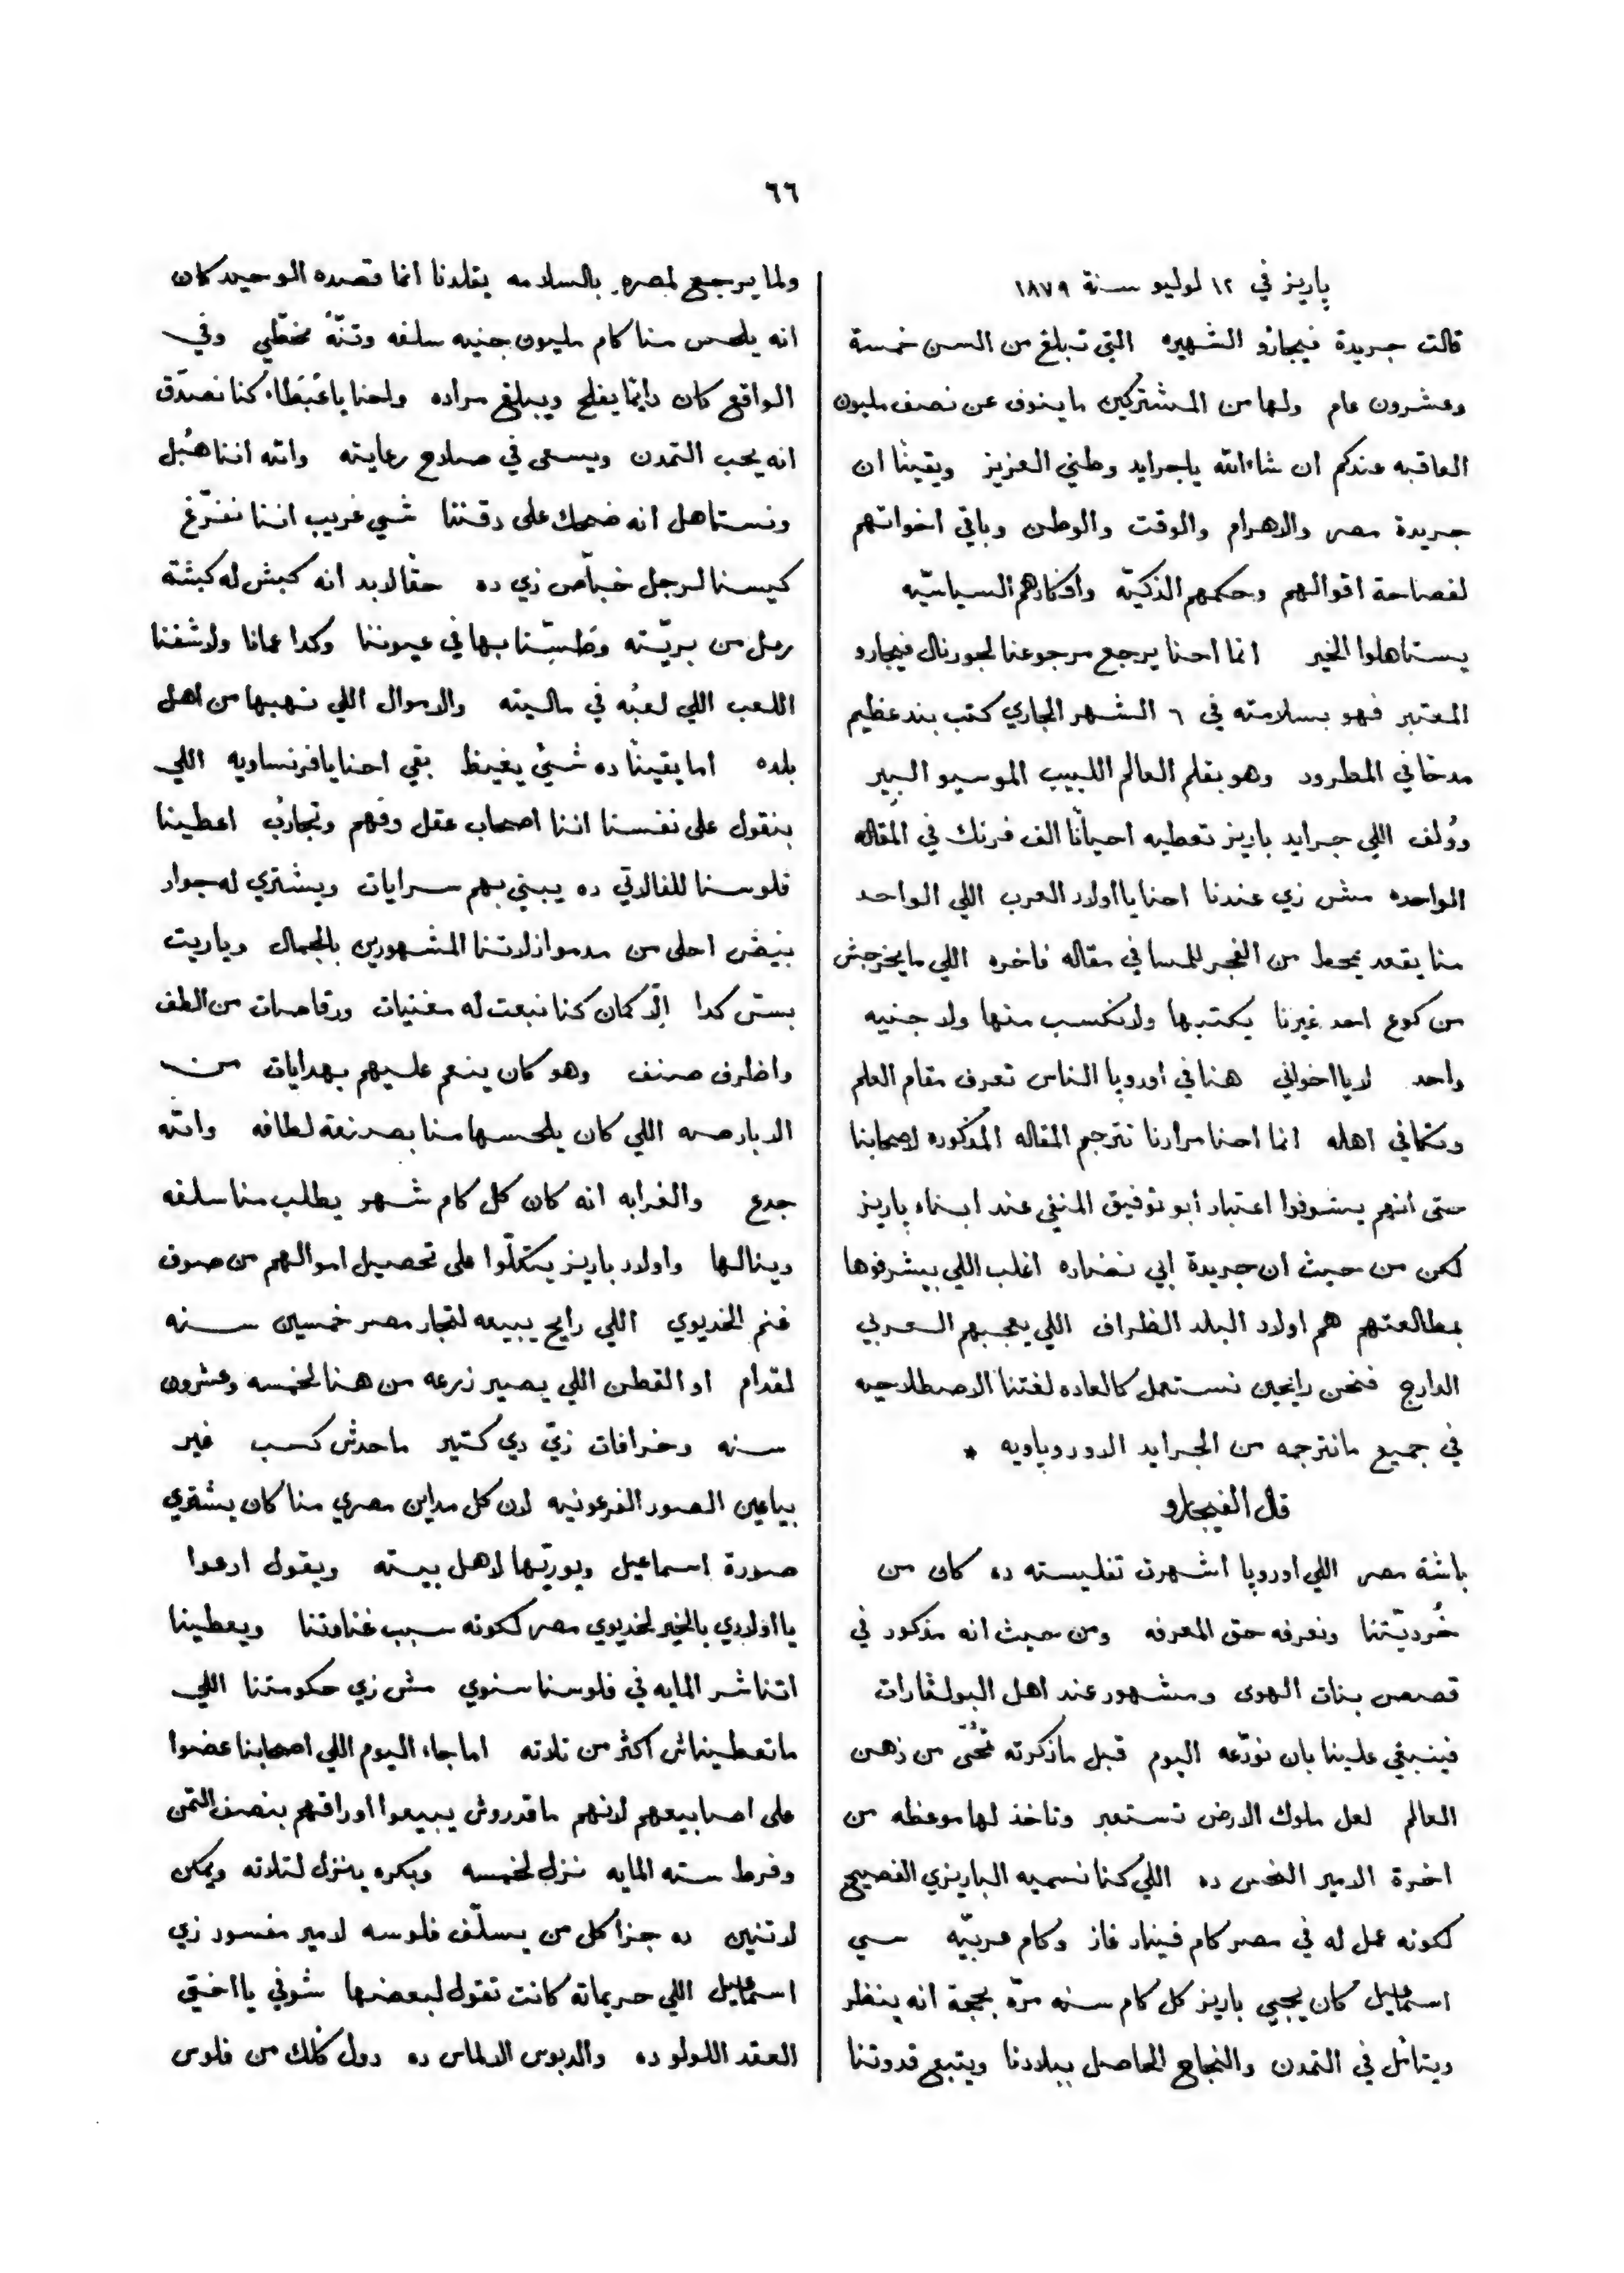 ٦٦
پاريز في ١٢ لوليو سنة ١٨٧٩
قالت جريدة فيجارو الشهيره التي تبلغ من السن خمسة
وعشرون عام ولها من المشتركين ما ينوف عن نصف مليون
العاقبه عندكم ان شاء الله يا جرايد وطني العزيز ويقيناً ان
جريدة مصر والاهرام والوقت والوطن وباقي اخواتهم
لفصاحة اقوالهم وحكمهم الذكيّه وافكارهم السياسيّه
يستاهلوا الخير انما احنا يرجع مرجوعنا لجورنال فيجارو
المعتبر فهو بسلامته في ٦ الشهر الجاري كتب بند عظيم
مدحاً في المطرود وهو بقلم العالم اللبيب الموسيو البير
وولف اللي جرايد باريز تعطيه احياناً الف فرنك في المقاله
الواحده مش زي عندنا احنا يا اولاد العرب اللي الواحد
منا يقعد من الفجر للمسا في مقاله فاخره اللي ما يخرجش
من كوع احد غيرنا يكتبها ولا نكسب منها ولا جنيه
واحد لا يا اخواني هنا في اوروپا الناس تعرف مقام العلم
وتكافي اهله انما احنا مرادنا نترجم المقاله المذكوره لاصحابنا
حتى انهم يشوفوا اعتبار ابو توفيق المنفي عند ابناء پاريز
لكن من حيث ان جريدة ابي نضاره اغلب اللي بيشرفوها
بمطالعتهم هم اولاد البلد الظراف اللي يعجبهم العربي
الدارج فنحن رايحين نستعمل كالعاده لغتنا الاصطلاحيه
في جميع ما نترجمه من الجرايد الاوروپاويه *
قال الفيجارو
باشة مصر اللي اوروپا اشهرت تفليسته ده كان من
ونعرفه حق المعرفه ومن حيث انه مذكور في
قصص بنات الهوى ومشهور عند اهل البولڤارات
فينبغي علينا بان نودّعه اليوم قبل ما ذكرته من ذهن
العالم لعل ملوك الارض تستعبر وتاخذ لها موعظه من
اخرة الامير النحس ده اللي كنا نسميه الباريزي الفصيح
لكونه عمل له في مصر كام فينار غاز وكام عربيّه سي
اسماعيل كان يجيي باريز كل كام سنه مرّه بحجة انه ينظر
ويتامّل في التمدن والنجاح الحاصل ببلادنا ويتبع قدوتنا
ولما يرجع لمصره بالسلامه يقلدنا انما قصده الوحيد كان
انه يلحس منا كام مليون جنيه سلفه وتنّهُ مخطّي وفي
الواقع كان دايماً يفلح ويبلغ مراده واحنا يا كنا نصدّق
انه يحب التمدن ويسعى في صلاح رعايته والله اننا هُبل
ونستاهل انه ضحك على دقننا شي غريب اننا نفرّغ
كيسنا لرجل خبّاص زي ده حقاً لابد انه كبش له كبشة
رمل من بريّته بها في عيوننا وكدا عمانا ولا شفنا
اللعب اللي لعبُه في ماليته والاموال اللي نهبها من اهل
بلده اما يقيناً ده شيْ يغيظ بقي احنا يا فرنساويه اللي
بنقول على نفسنا اننا اصحاب عقل وفهم وتجارُب اعطينا
فلوسنا للفالاتي ده يبني بهم سرايات ويشتري له جوار
بيض احلى من مدموازلاتنا المشهورين بالجمال وياريت
بسّ كدا الّا كمان كنا نبعت له مغنيات ورقاصات من الطف
واظرف صنف وهو كان ينعم عليهم بهدايات من
الدبارصه اللي كان يلحسها منا بصنعة لطافه والله
جدع والغرابه انه كان كل كام شهر يطلب منا سلفه
وينالها واولاد باريز يتكلّوا على تحصيل اموالهم من صوف
غنم الخديوي اللي رايح يبيعه لتجار مصر خمسين سنه
لقدام او القطن اللي يصير زرعه من هنا لخمسه وعشرون
سنه وخرافات زيّ دي كتير ماحدش كسب غير
بياعين الصور الفرعونيه لان كل مداين مصري منا كان يشتري
صورة اسماعيل ويوريّها لاهل بيته ويقول ادعوا
يا اولادي بالخير لخديوي مصر لكونه سبب غناوتنا ويعطينا
اتناشر المايه في فلوسنا سنوي مش زي حكومتنا اللي
ما تعطيناش اكثر من تلاته اما جاء اليوم اللي اصحابنا عضوا
على اصابيعهم لانهم ما قدروش يبيعوا اوراقهم بنصف التمن
وفرط سته المايه نزل لخمسه وبكره ينزل لتلاته ويمكن
لاتنين ده جزا كل من يسلّف فلوسه لامير مفسود زي
اسماعيل اللي حريماته كانت تقول لبعضها شوفي يا اختي
العقد اللولو ده والدبوس الالماس ده دول من فلوس